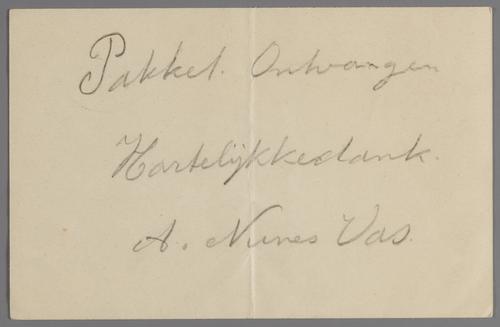 Pakket. Ontvangen
Hartelijkkedank.
A. Nunes Vas.